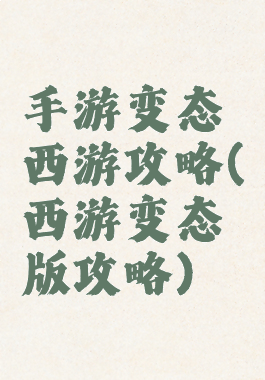 手游变态
西游攻略(
西游变态
版攻略)